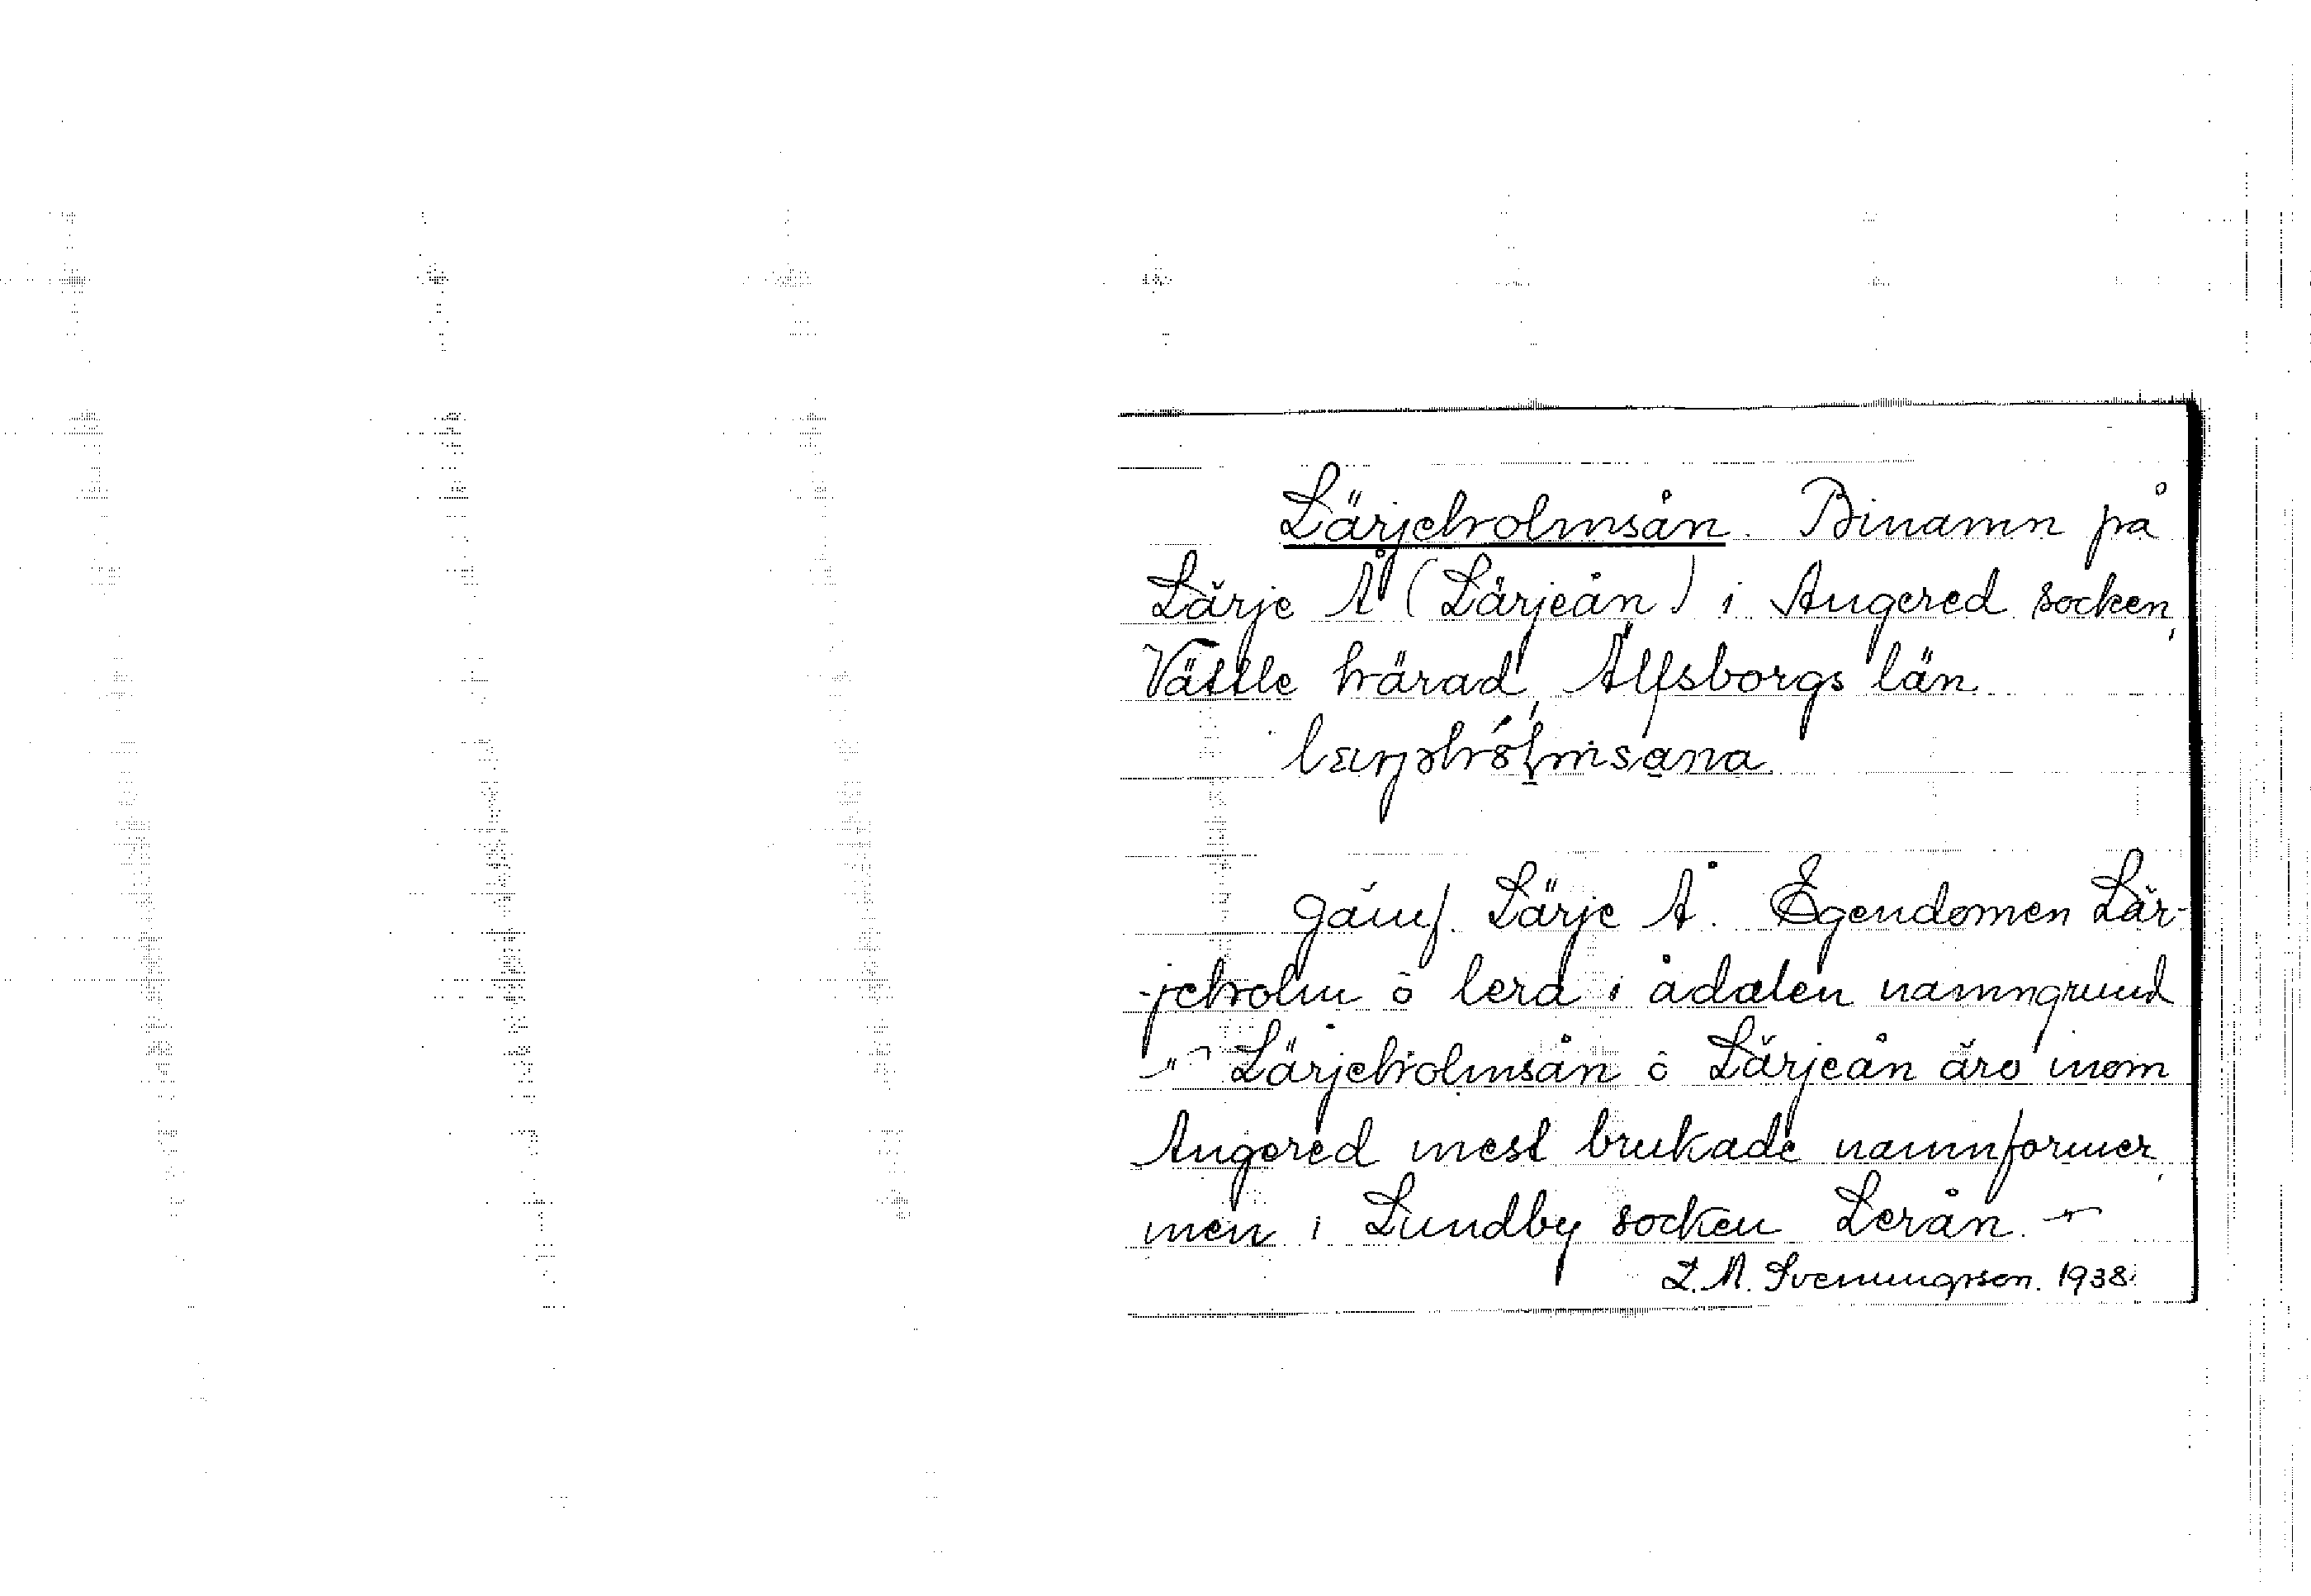 Lärjeholmsån. Binamn på
Lärje Å (Lärjeån) i Angered socken,
Vättle härad, Älfsborgs län.
Jämf. Lärje Å. Egendomen Lär-
-jeholm o lera i ådalen namngrund
-"- Lärjeholmsån o Lärjeån äro inom
Angered mest brukade namnformer,
men i Lundby socken Lerån. -"-
L. A. Svenungsson. 1938.